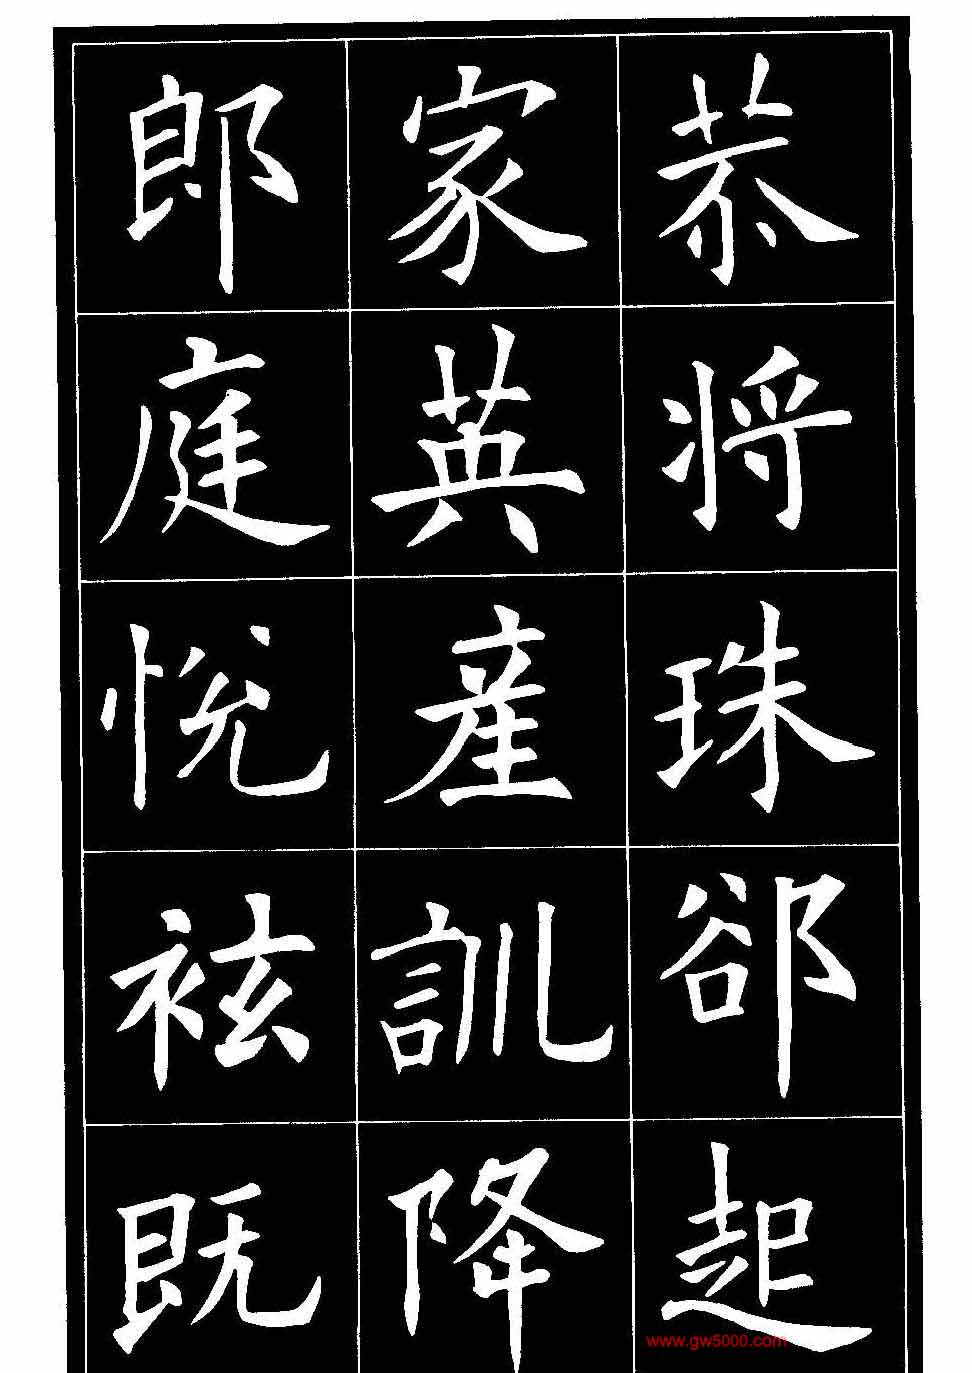 恭將珠郤起
家英產訓降
郎庭悅袨既
www.gw5000.com